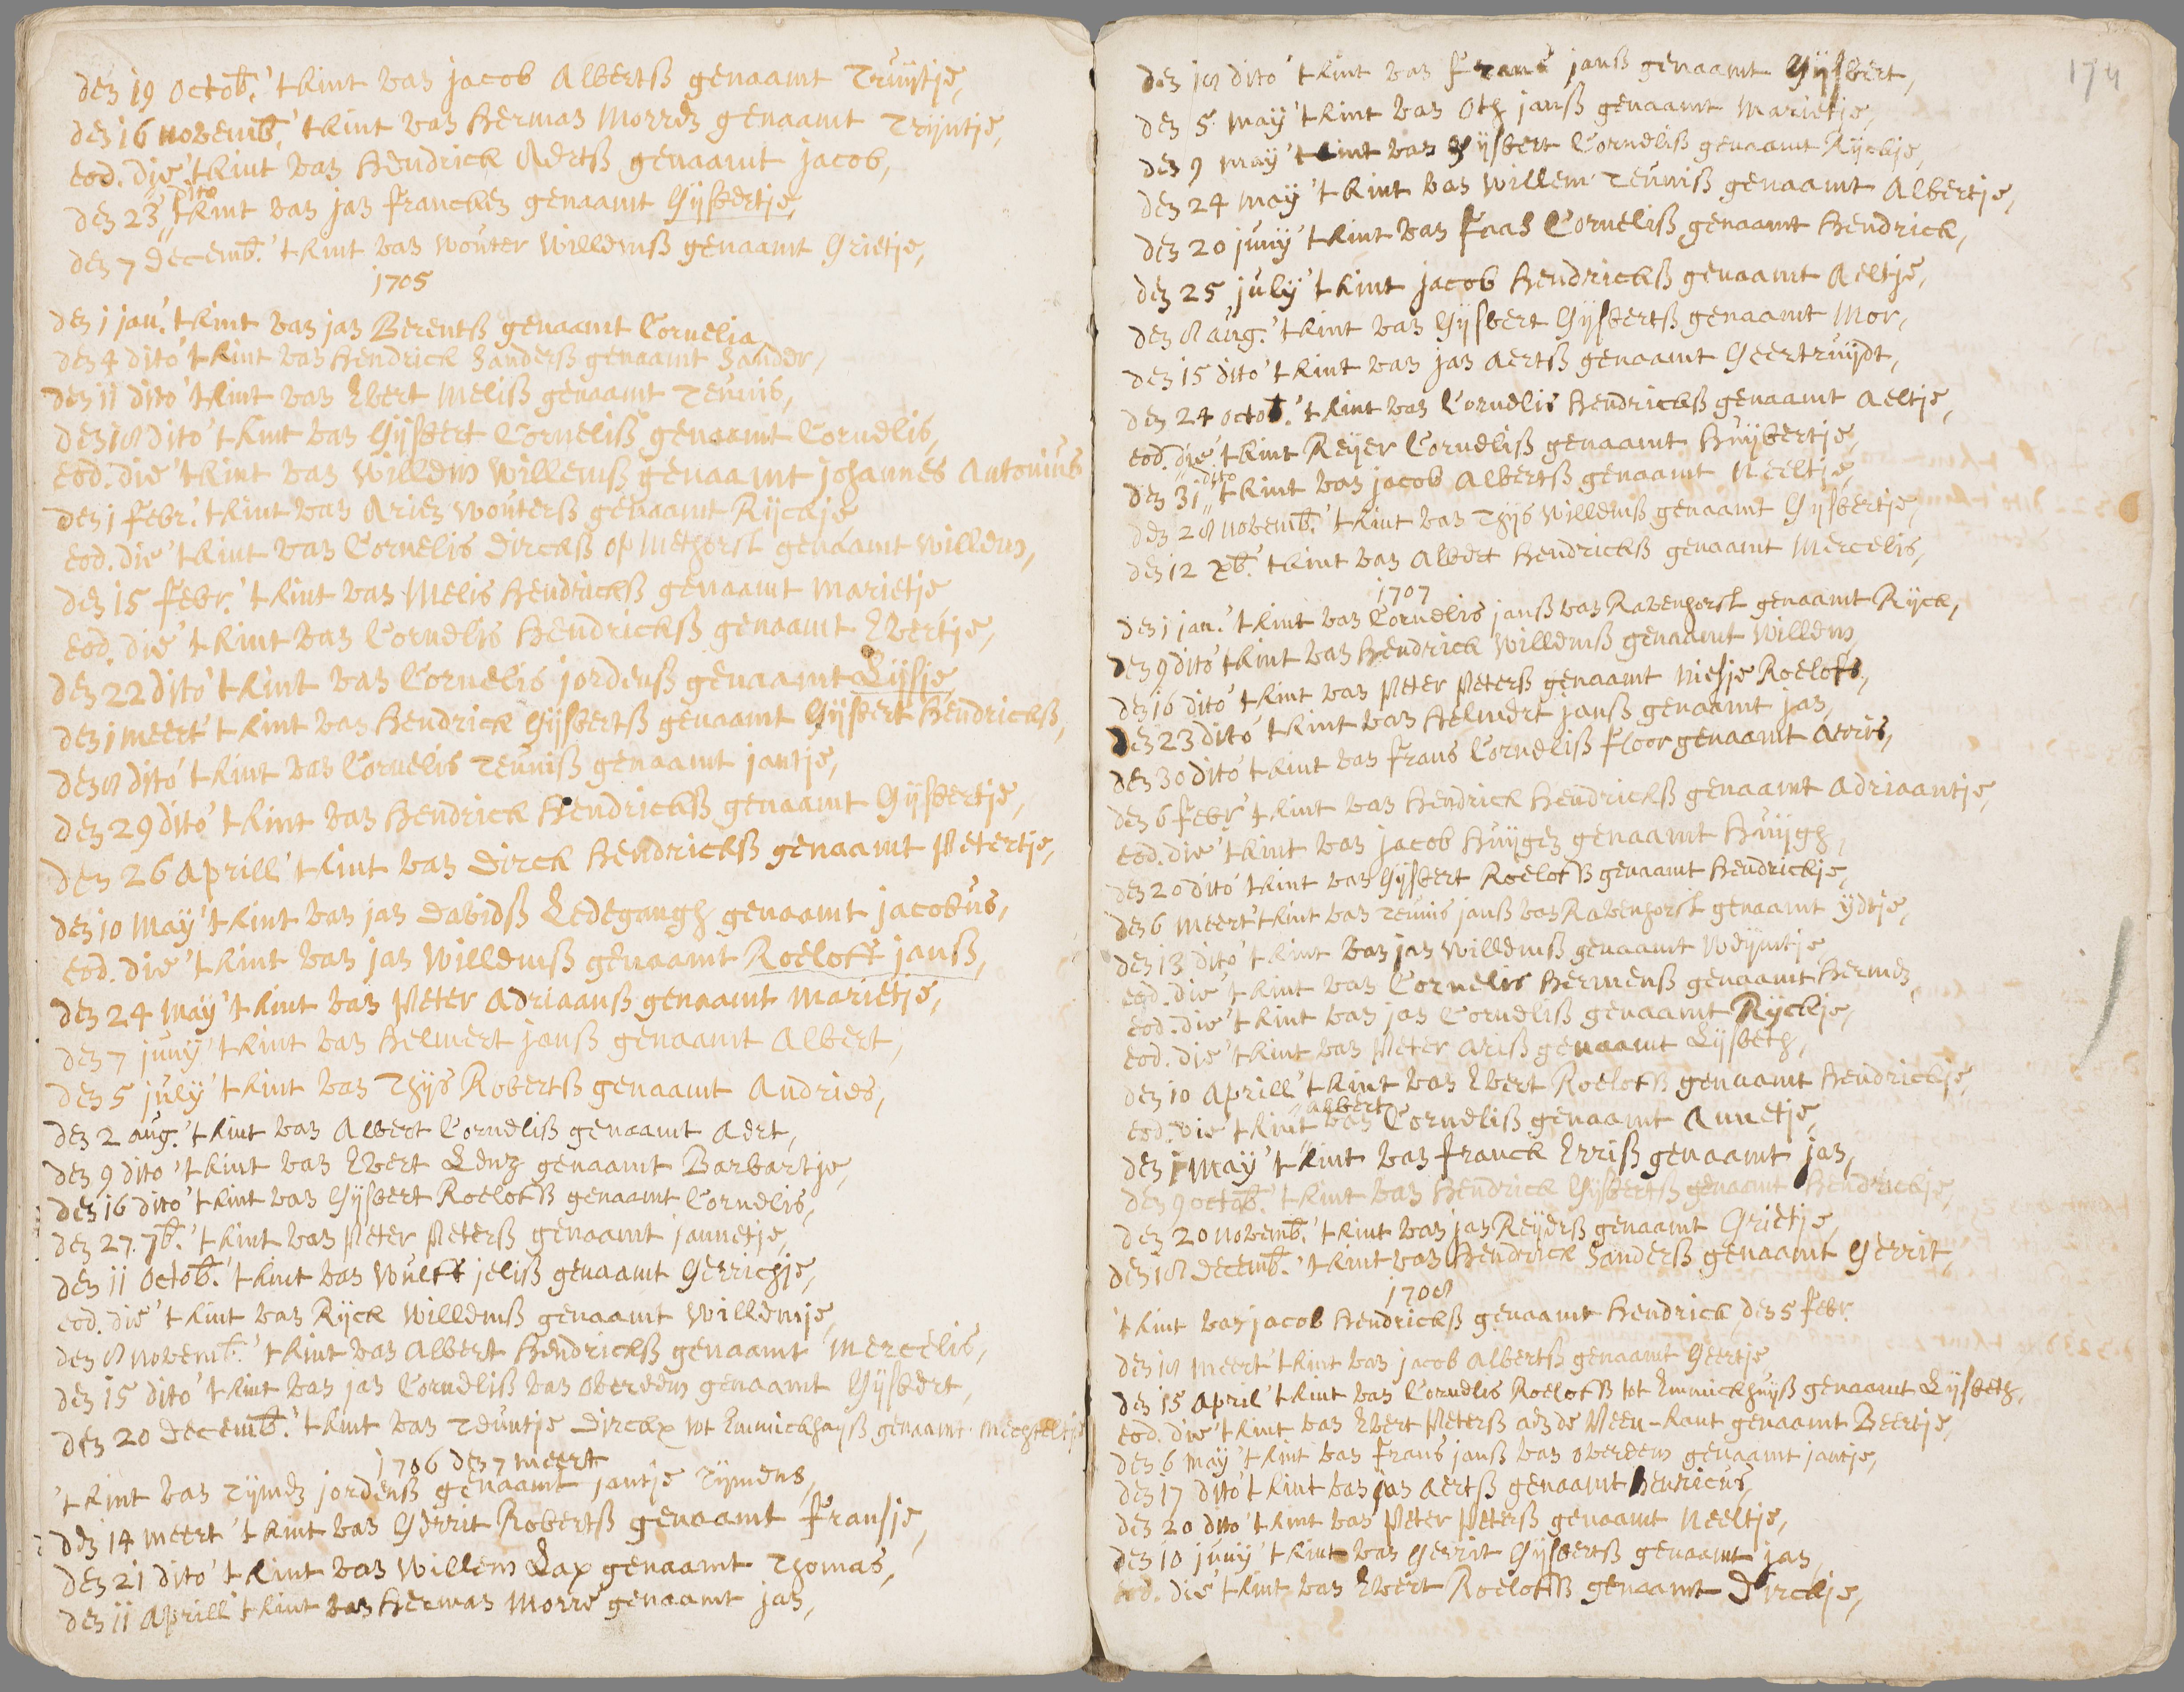 den 19 octob. 't kint van jacob Albertsz genaamt Truijtje,
den 16 novemb. 't kint van Herman Morren genaamt Trijntje,
eod. die 't kint van Hendrick Aertsz genaamt jacob,
den 23 dito 't kint van jan francken genaamt Gijsbertje,
den 7 decemb. 't kint van wouter willemsz genaamt Grietje,
1705
den 1 jan. 't kint van jan Berentsz genaamt Cornelia,
den 4 dito 't kint van Hendrick Sandersz genaamt Sander,
den 11 dito 't kint van Evert Melisz genaamt Teunis,
den 18 dito 't kint van Gijsbert Cornelisz genaamt Cornelis,
eod. die 't kint van Willem Willemsz genaamt johannes Antonius
den 1 febr. 't kint van Arien woutersz genaamt Rijckje
eod. die 't kint van Cornelis dircksz op Methorst genaamt willem,
den 15 febr. 't kint van Melis Hendricksz genaamt marietje
eod. die 't kint van Cornelis Hendricksz genaamt Evertje,
den 22 dito 't kint van Cornelis jordensz genaamt Lijsje,
den 1 meert 't kint van Hendrick Gijsbertsz genaamt Gijsbert Hendricksz,
den 8 dito 't kint van Cornelis Teunisz genaamt jantje,
den 29 dito 't kint van Hendrick Hendricksz genaamt Gijsbertje,
den 26 Aprill 't kint van Dirck Hendricksz genaamt Petertje,
den 10 May 't kint van jan davidsz Ledegangh genaamt jacobus,
eod. die 't kint van jan willemsz genaamt Roeloff jansz,
den 24 may 't kint van Peter Adriaansz genaamt marietje,
den 7 juny 't kint van Helmert jansz genaamt Albert,
den 5 july 't kint van Thijs Robertsz genaamt Andries,
den 2 aug. 't kint van Albert Cornelisz genaamt Aert,
den 9 dito 't kint van Evert genaamt Barbartje,
den 16 dito 't kint van Gijsbert Roelofsz genaamt Cornelis,
den 27. 7b. 't kint van Peter Petersz genaamt jannetje,
den 11 octob. 't kint van Wulff jelisz genaamt Gerrichje,
eod. die 't kint van Rijck Willemsz genaamt Willemje,
den 8 novemb. 't kint van Albert Hendricksz genaamt Mercelis,
den 15 dito 't kint van jan Cornelisz van overeem genaamt Gijsbert,
den 20 decemb. 't kint van Teuntje Dircx tot Emmickhuijsz genaamt Mechteltje
1706 den 7 meert
't kint van Tijmen jordensz genaamt jantje Tijmens,
den 14 meert 't kint van Gerrit Robertsz genaamt Fransje,
den 21 dito 't kint van Willem Lax genaamt Thomas,
den 11 Aprill 't kint van Herman Morre genaamt jan,
174
den 18 dito 't kint van Frans jansz genaamt Gijsbert,
den 5 may 't kint van Oth jansz genaamt Marietje,
den 9 may 't kint van Gijsbert Cornelisz genaamt Rijckje,
den 24 may 't kint van Willem Teunisz genaamt Albertje,
den 20 juny 't kint van Faas Cornelisz genaamt Hendrick,
den 25 july 't kint jacob Hendricksz genaamt Aeltje,
den 8 aug. 't kint van Gijsbert Gijsbertsz genaamt Mor,
den 15 dito 't kint van jan aertsz genaamt Geertruijdt,
den 24 octob. 't kint van Cornelis Hendricksz genaamt aeltje,
eod. die 't kint Reijer Cornelisz genaamt Huijbertje,
den 31 dito 't kint van jacob Albertsz genaamt Neeltje,
den 28 novemb. 't kint van Thijs Willemsz genaamt Gijsbertje,
den 12 xb. 't kint van Albert Hendricksz genaamt Mercelis,
1707
den 1 jan. 't kint van Cornelis jansz van Ravenhorst genaamt Rijck,
den 9 dito 't kint van Hendrick Willemsz genaamt Willem,
den 16 dito 't kint van Peter Petersz genaamt niesje Roelofs,
den 23 dito 't kint van Helmert jansz genaamt jan,
den 30 dito 't kint van frans Cornelisz floor genaamt aerris,
den 6 febr. 't kint van Hendrick Hendricksz genaamt Adriaantje,
eod. die 't kint van jacob Huijgen genaamt Huijgh,
den 20 dito 't kint van Gijsbert Roelofsz genaamt Hendrickje,
den 6 meert 't kint van Teunis jansz van Ravenhorst genaamt ijdtje,
den 13 dito 't kint van jan Willemsz genaamt Weijmtje
eod. die 't kint van Cornelis Hermensz genaamt Hermen,
eod. die 't kint van jan Cornelisz genaamt Rijckje,
eod. die 't kint van Peter arisz genaamt Lijsbeth,
den 10 Aprill 't kint van Evert Roelofsz genaamt Hendrickje,
eod. die 't kint van albert Cornelisz genaamt Annetje,
den 1 May 't kint van franck Errisz genaamt jan,
den 9 octob. 't kint van Hendrick Gijsbertsz genaamt Hendrickje,
den 20 novemb. 't kint van jan Reijersz genaamt Grietje,
den 18 decemb. 't kint van Hendrick Sandersz genaamt Gerrit,
1708
't kint van jacob Hendricksz genaamt Hendrick den 5 febr.
den 18 meert 't kint van jacob albertsz genaamt Geertje,
den 15 april 't kint van Cornelis Roelofsz tot Emmickhuijsz genaamt Lijsbeth,
eod. die 't kint van Evert Petersz aen de Veen-kant genaamt Beertje,
den 6 may 't kint van frans jansz van overeem genaamt jantje,
den 17 dito 't kint van jan aertsz genaamt henricus,
den 20 dito 't kint van Peter Petersz genaamt neeltje,
den 10 juny 't kint van Gerrit Gijsbertsz genaamt jan,
eod. die 't kint van Evert Roelofsz genaamt Dirckje,